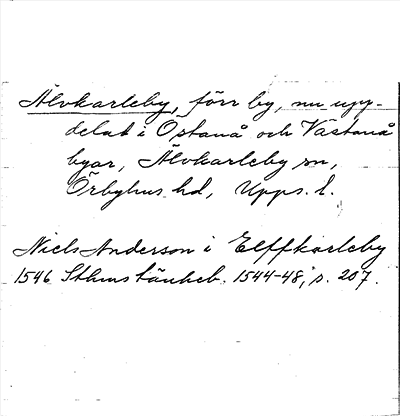 Älvkarleby, förr by, nu upp-
delat i Östanå och Västanå
byar, Älvkarleby sn,
Örbyhus hd, Upps. l.
Niels Anderson i Elffkarleby
1546 Sthms tänkeb. 1544-48, s. 207.